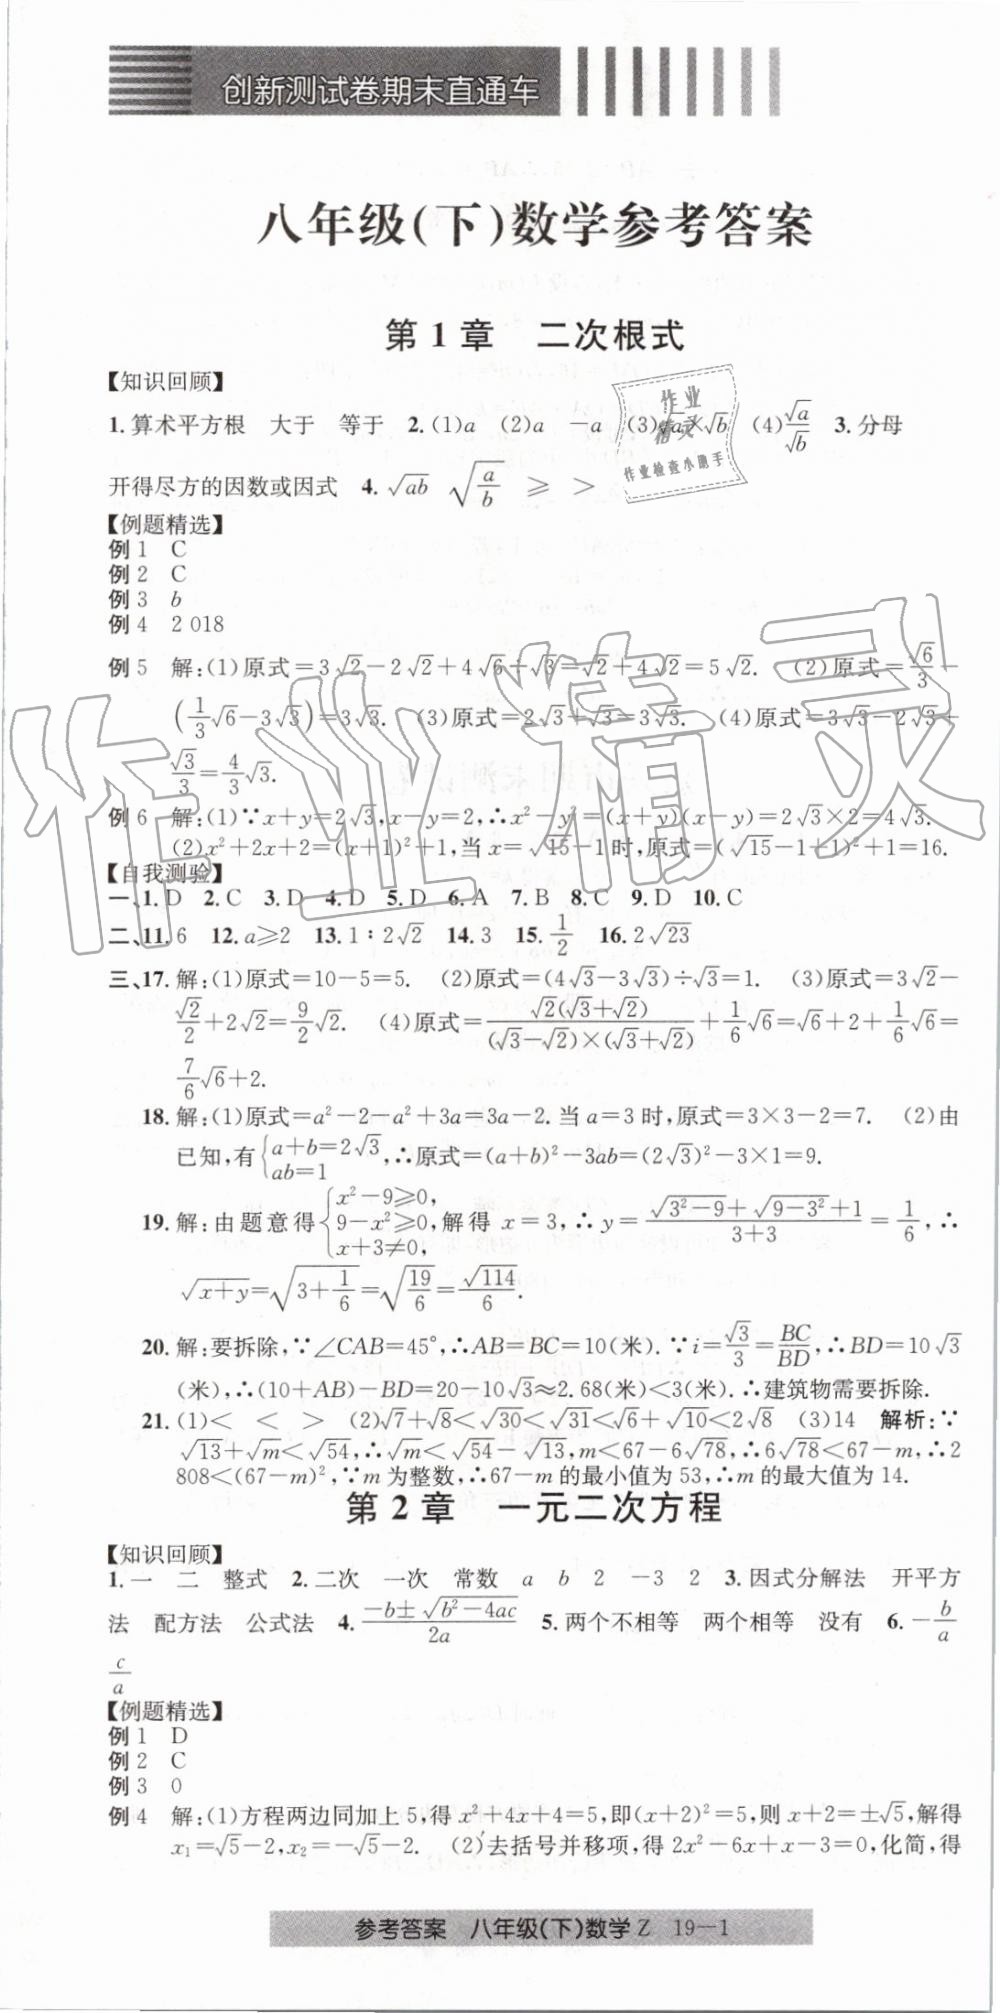 创新测试卷期末直通车
八年级(下)数学参考答案
第1章 二次根式
【知识回顾】
1.算术平方根 大于 等于 2.(1)a (2)a －a (3)√a×√b (4)√a/√b 3.分母
开得尽方的因数或因式 4.√ab √(a/b) ≥ ＞
【例题精选】
例1 C
例2 C
例3 b
例4 2 018
例5 解:(1)原式=3√2－2√2+4√6÷√3=√2+4√2=5√2. (2)原式=√6/3－
(1/3√6－3√3)=3√3. (3)原式=2√3+√3=3√3. (4)原式=3√3－2√3+
√3/3=4/3√3.
例6 解:(1)∵x+y=2√3,x－y=2,∴x²－y²=(x+y)(x－y)=2√3×2=4√3.
(2)x²+2x+2=(x+1)²+1,当x=√15－1时,原式=(√15－1+1)²+1=16.
【自我测验】
一、1.D 2.C 3.D 4.D 5.D 6.A 7.B 8.C 9.D 10.C
二、11.6 12.a≥2 13.1∶2√2 14.3 15.1/2 16.2√23
三、17.解:(1)原式=10－5=5. (2)原式=(4√3－3√3)÷√3=1. (3)原式=3√2－
√2/2+2√2=9/2√2. (4)原式=√2(√3+√2)/((√3－√2)×(√3+√2))+1/6√6=√6+2+1/6√6=
7/6√6+2.
18.解:(1)原式=a²－2－a²+3a=3a－2.当a=3时,原式=3×3－2=7. (2)由
已知,有{a+b=2√3, ab=1 ∴原式=(a+b)²－3ab=(2√3)²－3×1=9.
19.解:由题意得{x²－9≥0, 9－x²≥0, x+3≠0, 解得x=3,∴y=(√(3²－9)+√(9－3²)+1)/(3+3)=1/6,∴
√(x+y)=√(3+1/6)=√(19/6)=√114/6.
20.解:要拆除,∵∠CAB=45°,∴AB=BC=10(米).∵i=√3/3=BC/BD,∴BD=10√3
(米),∴(10+AB)－BD=20－10√3≈2.68(米)<3(米).∴建筑物需要拆除.
21.(1)< < > (2)√7+√8<√30<√31<√6+√10<2√8 (3)14 解析:∵
√13+√m<√54,∴√m<√54－√13,m<67－6√78,∴6√78<67－m,∴2
808<(67－m)²,∵m为整数,∴67－m的最小值为53,∴m的最大值为14.
第2章 一元二次方程
【知识回顾】
1.一 二 整式 2.二次 一次 常数 a b 2 －3 2 3.因式分解法 开平方
法 配方法 公式法 4.(－b±√(b²－4ac))/2a 5.两个不相等 两个相等 没有 6.－b/a
c/a
【例题精选】
例1 D
例2 C
例3 0
例4 解:(1)方程两边同加上5,得x²+4x+4=5,即(x+2)²=5,则x+2=±√5,解得
x₁=√5－2,x₂=－√5－2. (2)去括号并移项,得2x²－6x+x－3=0,化简,得
参考答案 八年级(下)数学Z 19－1
作业精灵
作业
精灵
作业检查小助手